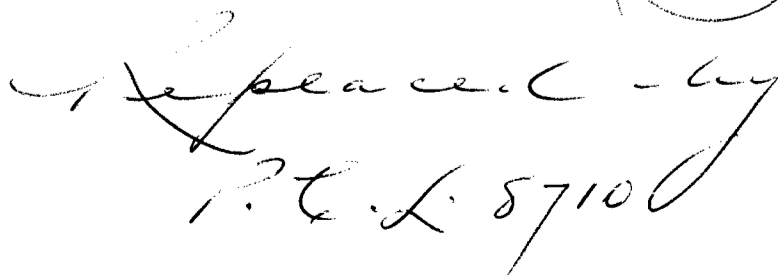 Replaced by
P.C.L. 8710